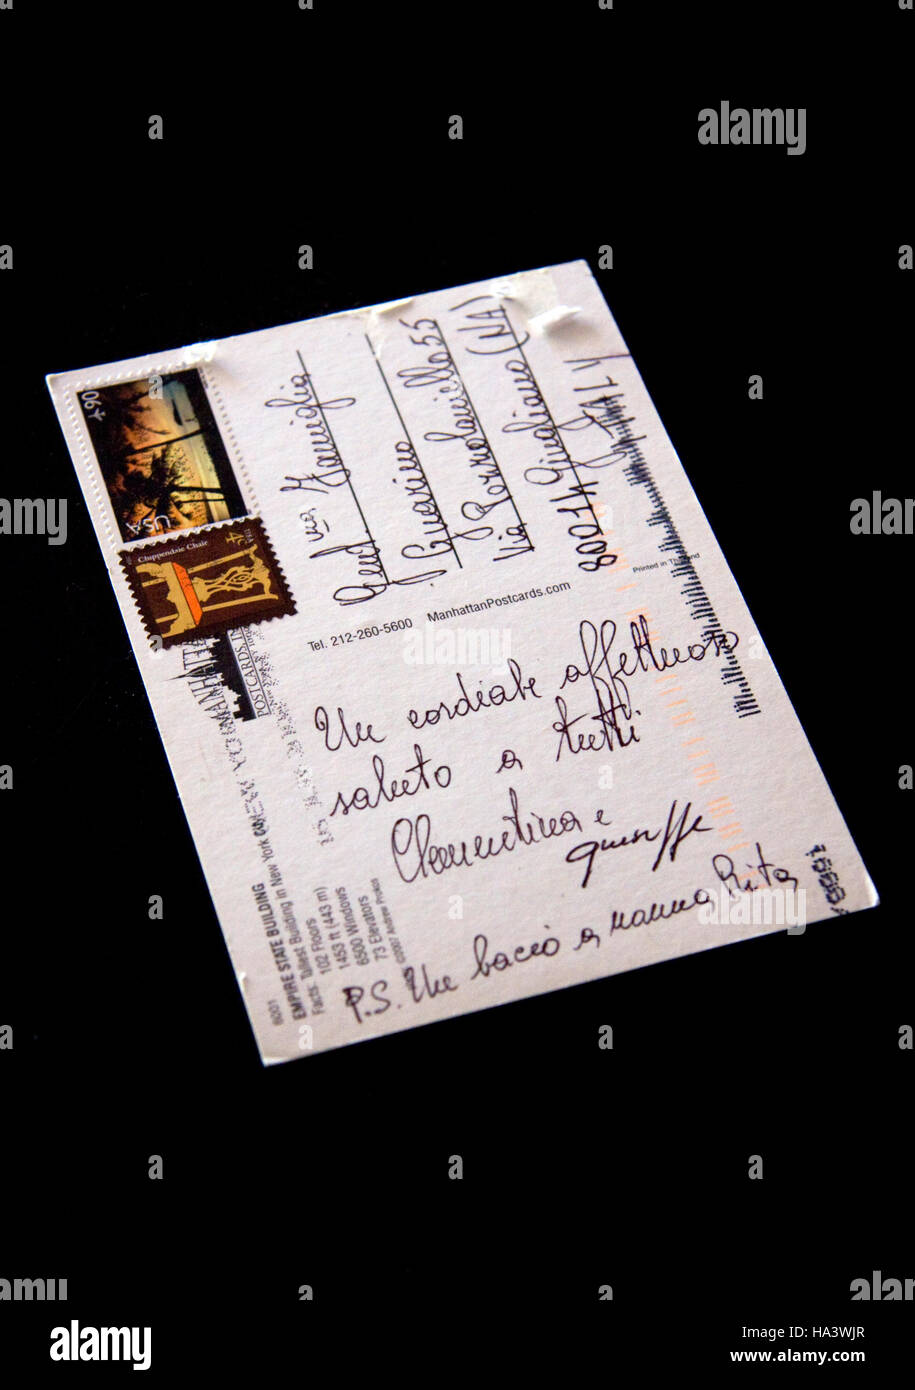 90
USA
Chippendale Chair
4c
Tel. 212-260-5600 ManhattanPostcards.com
Printed in Thailand
Famiglia
Guarino
55
Via Giugliano (NA)
80014
ITALY
Un cordiale affettuoso
saluto a tutti
Clementina e
Giuseppe
P.S. Un bacio a nonna Rita
6001
EMPIRE STATE BUILDING
Facts: Tallest Building in New York
102 Floors
1453 ft (443 m)
6500 Windows
73 Elevators
©2007 Andrew Prokos
MANHATTAN
POSTCARDS
a alamy
alamy
Image ID: HA3WJR
www.alamy.com